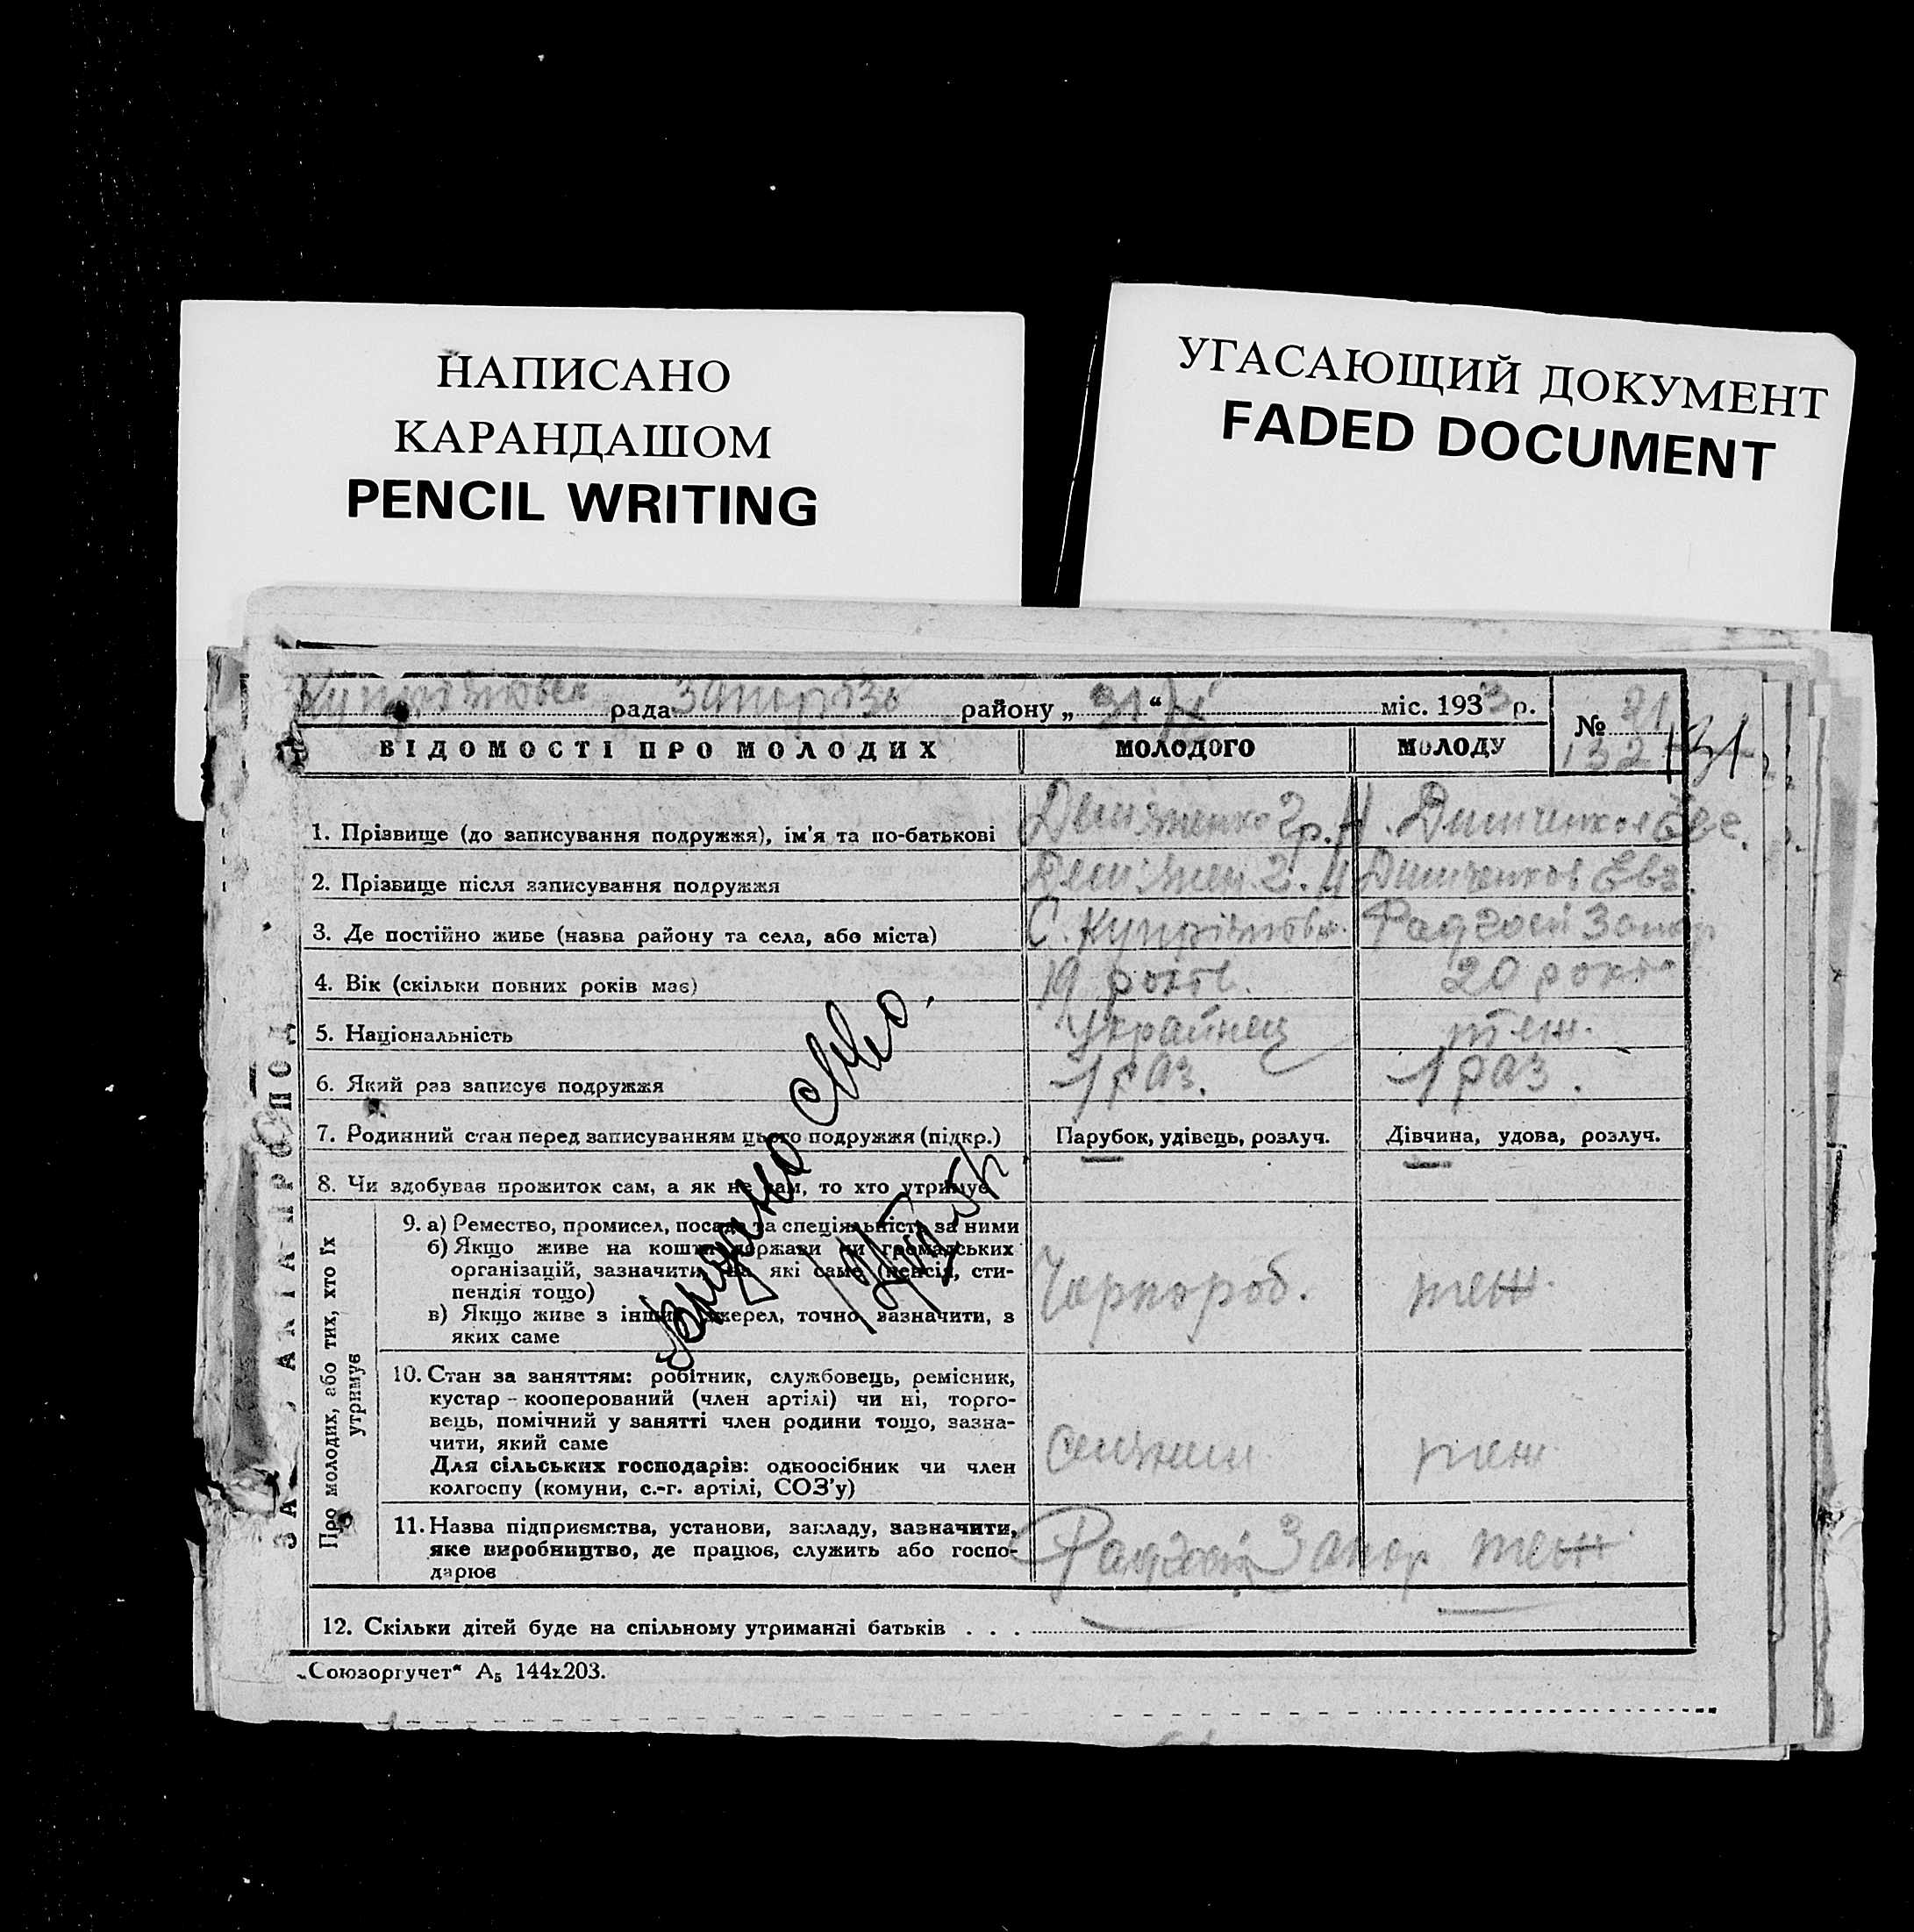 НАПИСАНО
КАРАНДАШОМ
PENCIL WRITING
УГАСАЮЩИЙ ДОКУМЕНТ
FADED DOCUMENT
рада району „ 31 “ міс. 1933 р.
№ 21
132
ВІДОМОСТІ ПРО МОЛОДИХ МОЛОДОГО МОЛОДУ
1. Прізвище (до записування подружжя), ім’я та по-батькові
2. Прізвище після записування подружжя
3. Де постійно живе (назва району та села, або міста) С. Радгосп Запор
4. Вік (скільки повних років має) 19 років. 20 років
5. Національність Українец теж.
6. Який раз записує подружжя 1 раз. 1 раз.
7. Родинний стан перед записуванням цього подружжя (підкр.) Парубок, удівець, розлуч. Дівчина, удова, розлуч.
8. Чи здобував прожиток сам, а як не сам, то хто утримує
Про молодих, або тих, хто їх
утримує
9. а) Ремество, промисел, посада та спеціяльність за ними
б) Якщо живе на кошти держави чи громадських
організацій, зазначити, на які саме (пенсія, сти-
пендія тощо)
в) Якщо живе з інших джерел, точно зазначити, з
яких саме
Чорнороб. теж.
10. Стан за заняттям: робітник, службовець, ремісник,
кустар – кооперований (член артілі) чи ні, торго-
вець, помічний у занятті член родини тощо, зазна-
чити, який саме
Для сільських господарів: одноосібник чи член
колгоспу (комуни, с.-г. артілі, СОЗ’у)
теж
11. Назва підприємства, установи, закладу, зазначити,
яке виробництво, де працює, служить або госпо-
дарює
Радгосп Запор теж
12. Скільки дітей буде на спільному утриманні батьків . . .
„Союзоргучет“ А₅ 144x203.